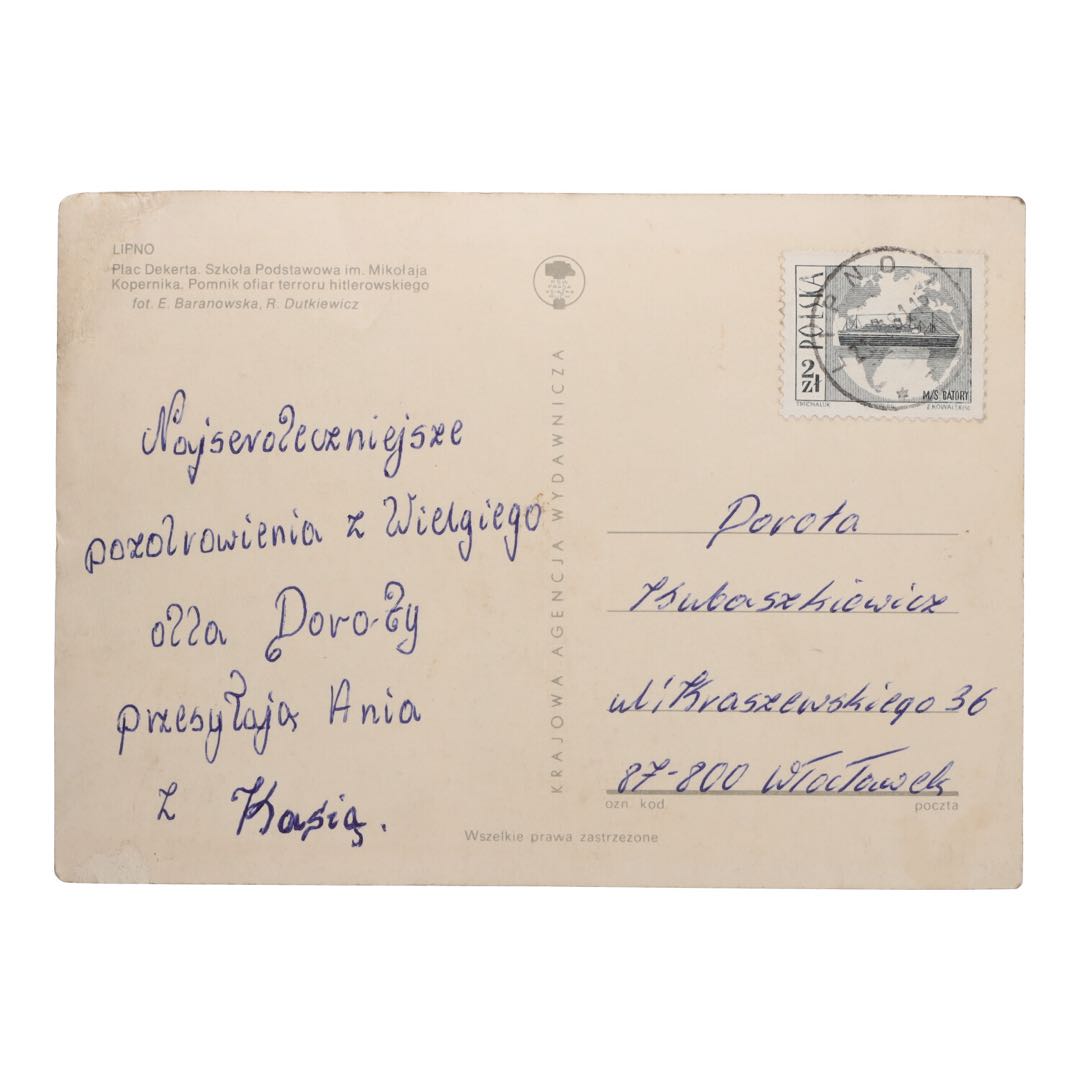 LIPNO
Plac Dekerta. Szkoła Podstawowa im. Mikołaja
Kopernika. Pomnik ofiar terroru hitlerowskiego
fot. E. Baranowska, R. Dutkiewicz
Najserdeczniejsze
pozdrowienia z Wielgiego
dla Doroty
przesyłają Ania
z Kasią.
KRAJOWA AGENCJA WYDAWNICZA
LIPNO 1
POLSKA
2 zł
M/S BATORY
T.MICHALUK
Z.KOWALSKI SC.
Dorota
Kubaszkiewicz
ul. Kraszewskiego 36
87-800 Włocławek
ozn. kod. poczta
Wszelkie prawa zastrzeżone